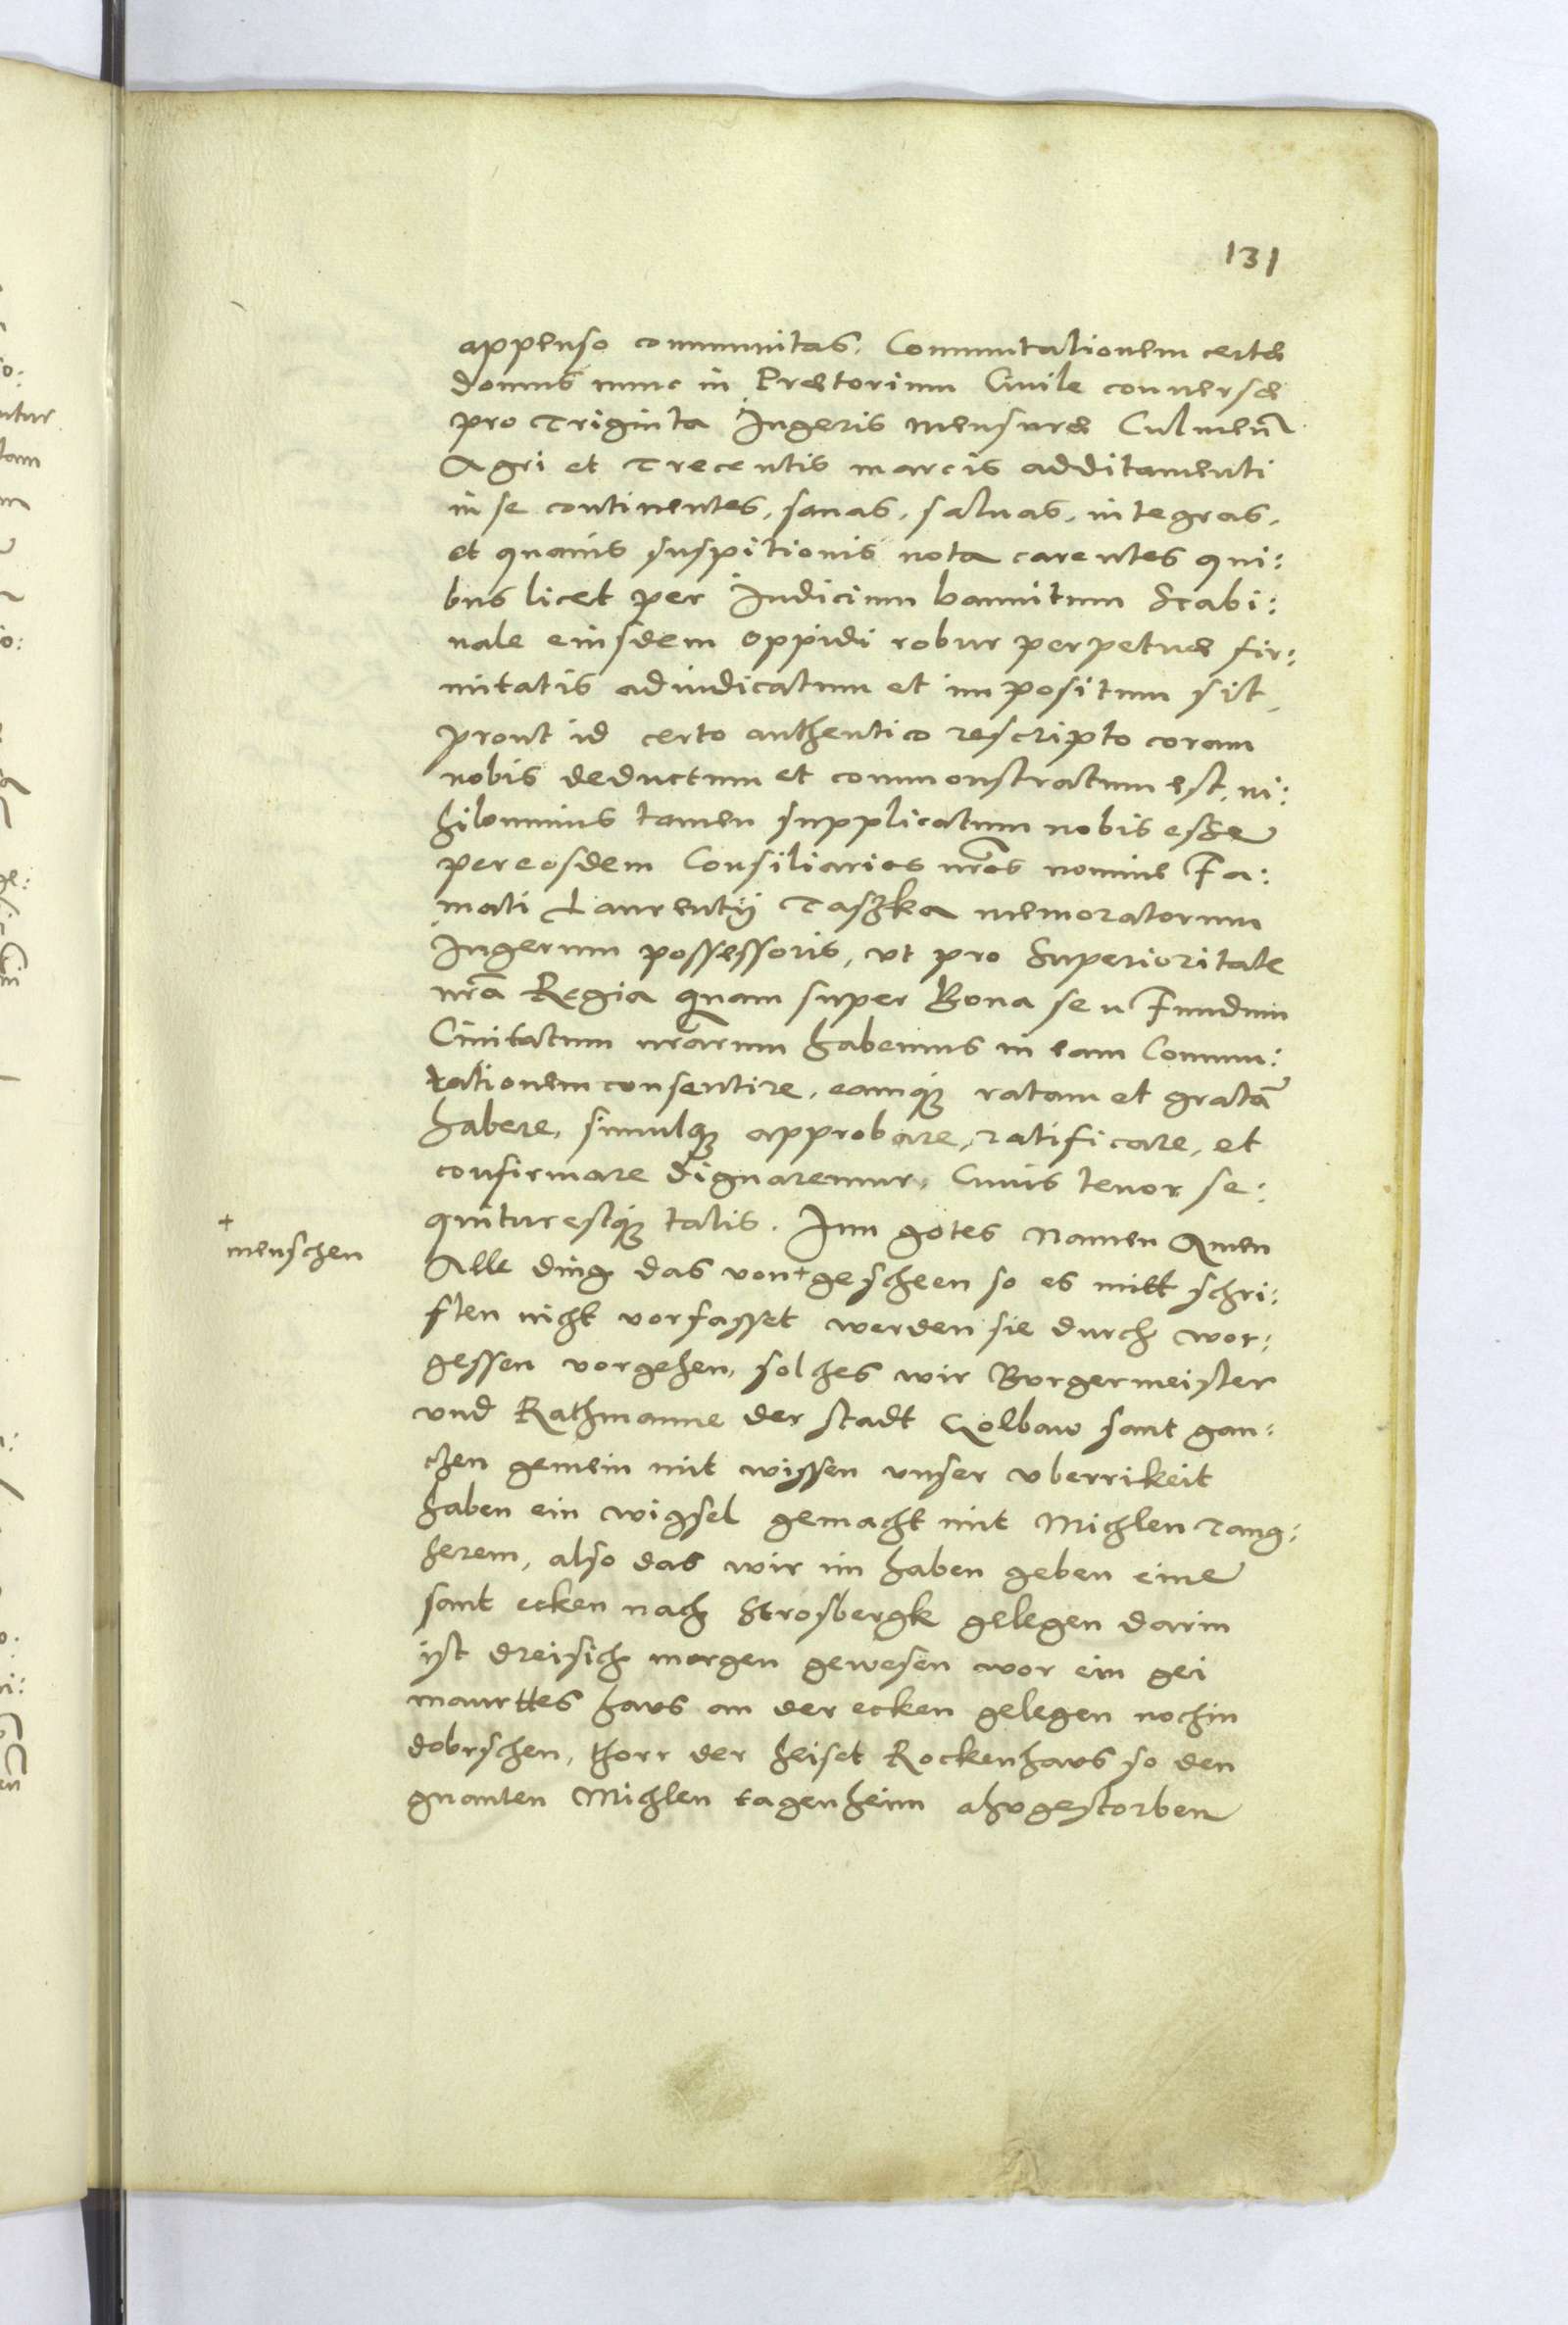 131
appenso communitas. Commutationem certæ
domus nunc in Prætorium Ciuile conuersæ
pro Triginta Iugeris mensuræ Culmen̄
Agri et Trecentis marcis additamenti
in se continentes, sanas, saluas, integras,
et quauis suspitionis nota carentes qui:
bus licet per Iudicium bannitum Scabi:
nale eiusdem oppidi robur perpetuæ fir:
mitatis adiudicatum et impositum sit,
prout id certo authentico rescripto coram
nobis deductum et commonstratum est, ni:
hilominus tamen supplicatum nobis esse
per eosdem Consiliarios nr̄os nomine Fa:
mati Laurentij Taszka memoratorum
Iugerum possessoris, vt pro Superioritate
nr̄a Regia quam super Bona seu Fundum
Ciuitatum nr̄arum habemus in eam Commu:
tationem consentire, eamq; ratam et gratā
habere, simulq; approbare, ratificare, et
confirmare dignaremur, Cuius tenor se:
quitur estq; talis. Inn gotes Namen Amen
+
menschen
Alle ding das von + gescheen so es mitt schri:
ften nicht vorfasset werden sie durch wor:
gessen vorgehen, solches wir Burgermeister
vnd Rathmanne der stadt Golbaw samt gan:
tzen gemein mit wissen vnser vberrikeit
haben ein wigsel gemacht mit Michlen Tang:
herem, also das wir im haben geben eine
sant ecken nach Strosbergk gelegen darin
ist dreisich morgen gewesen vor ein gei
maurttes haus an der ecken gelegen nochin
dobrschen, thorr der heiset Rockenhaus so den
gnanten Michlen tagenheim ahngestorben